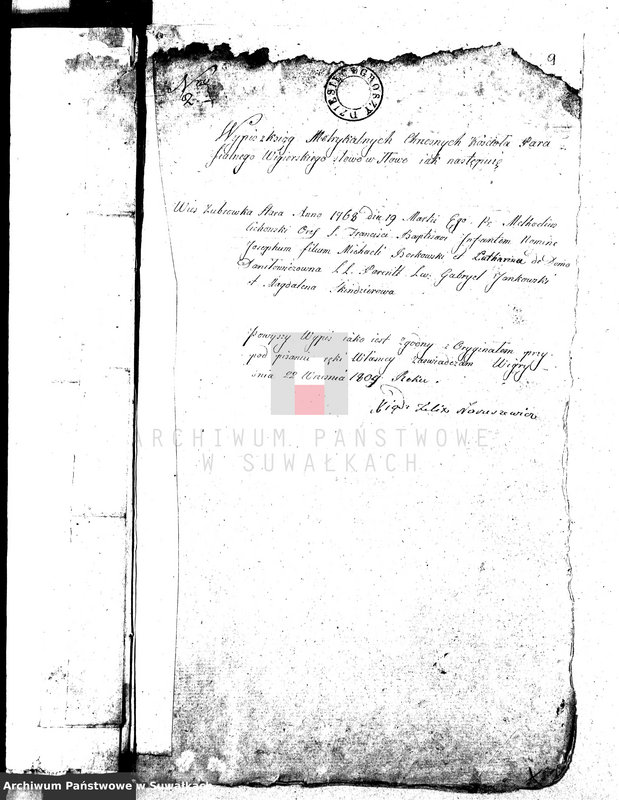 9
DZIESIĘĆ GROSZY
Wypis z Ksiąg Metrykalnych Chresnych Kościoła Para
fialnego Wigierskiego słowo w słowo iak następuię
Wieś Zubrowka Stara Anno 1768 die 19 Martii Ego Pr Methodius
Cichowski Ord S. Francisci Baptisavi Infantem Nomine
Josephum filium Michaeli Borkowski et Catharina de Domo
Daniłowiczowna L.L. Parentů Lev. Gabryel Jankowski
et Magdalena Skindzierowa
Powyszy Wypis iako iest zgodny z Oryginałem przy
pod pisaniu ręki Własney zaświadczam Wigry
dnia 22 Września 1809 Roku.
Xiądz Felix Naruszewicz
ARCHIWUM PAŃSTWOWE
W SUWAŁKACH
Archiwum Państwowe w Suwałkach